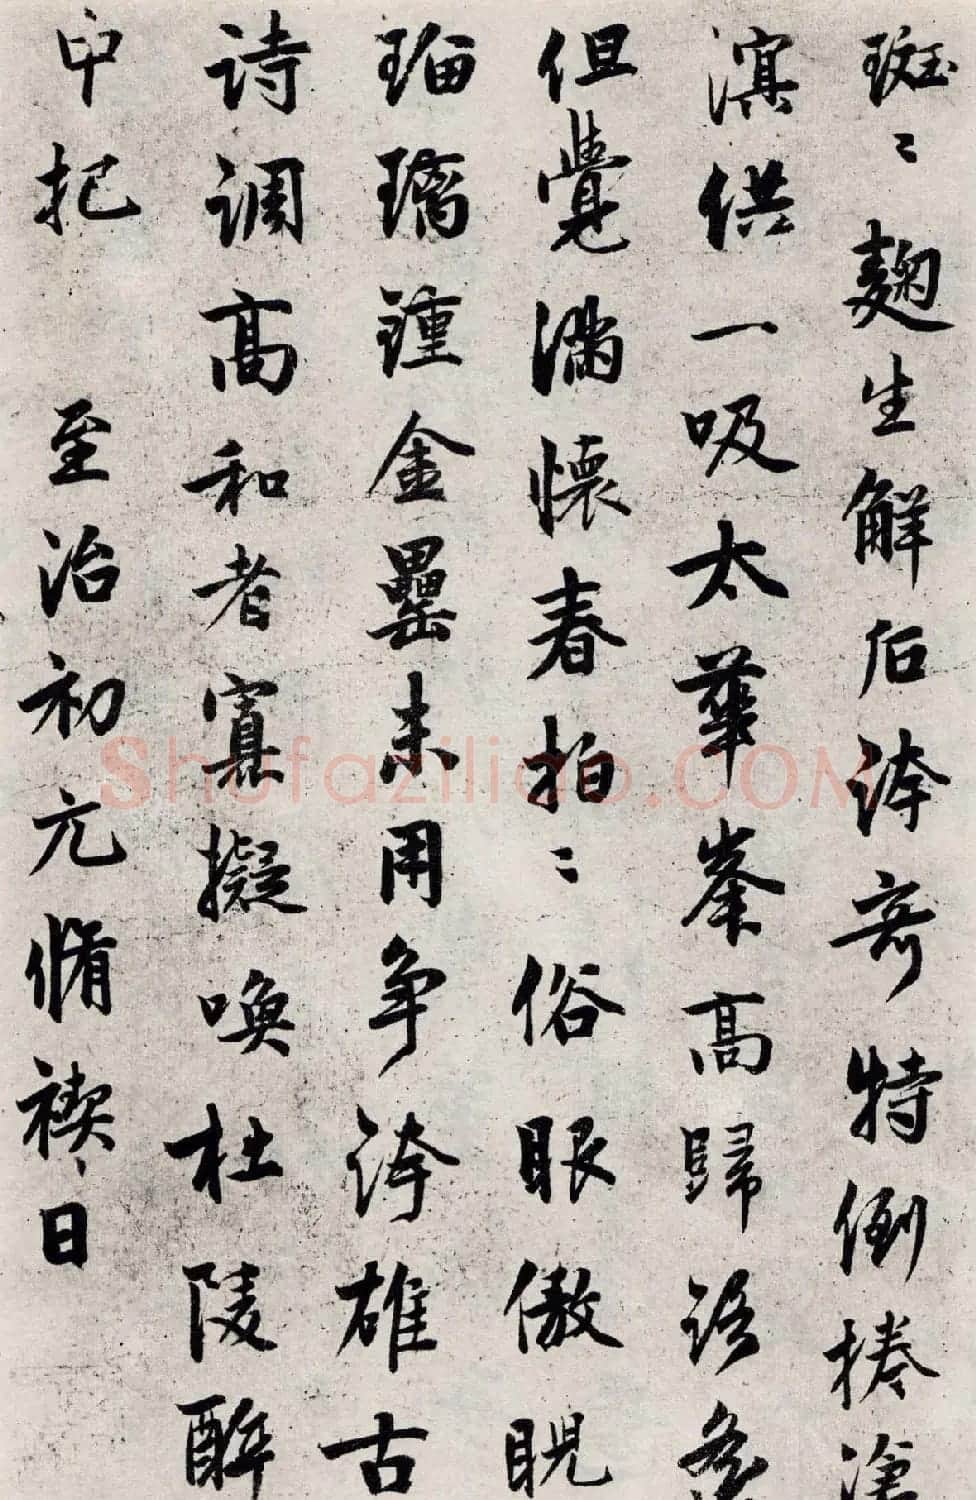 斑〻麹生解后誇奇特倒捲滄
溟供一吸太華峯高歸語
但覺滿懷春拍〻俗眼傲睨
瑠璃鍾金罍未用爭誇雄古
詩調高和者寡擬喚杜陵醉
中把 至治初元脩禊日
Shufaziliao.COM